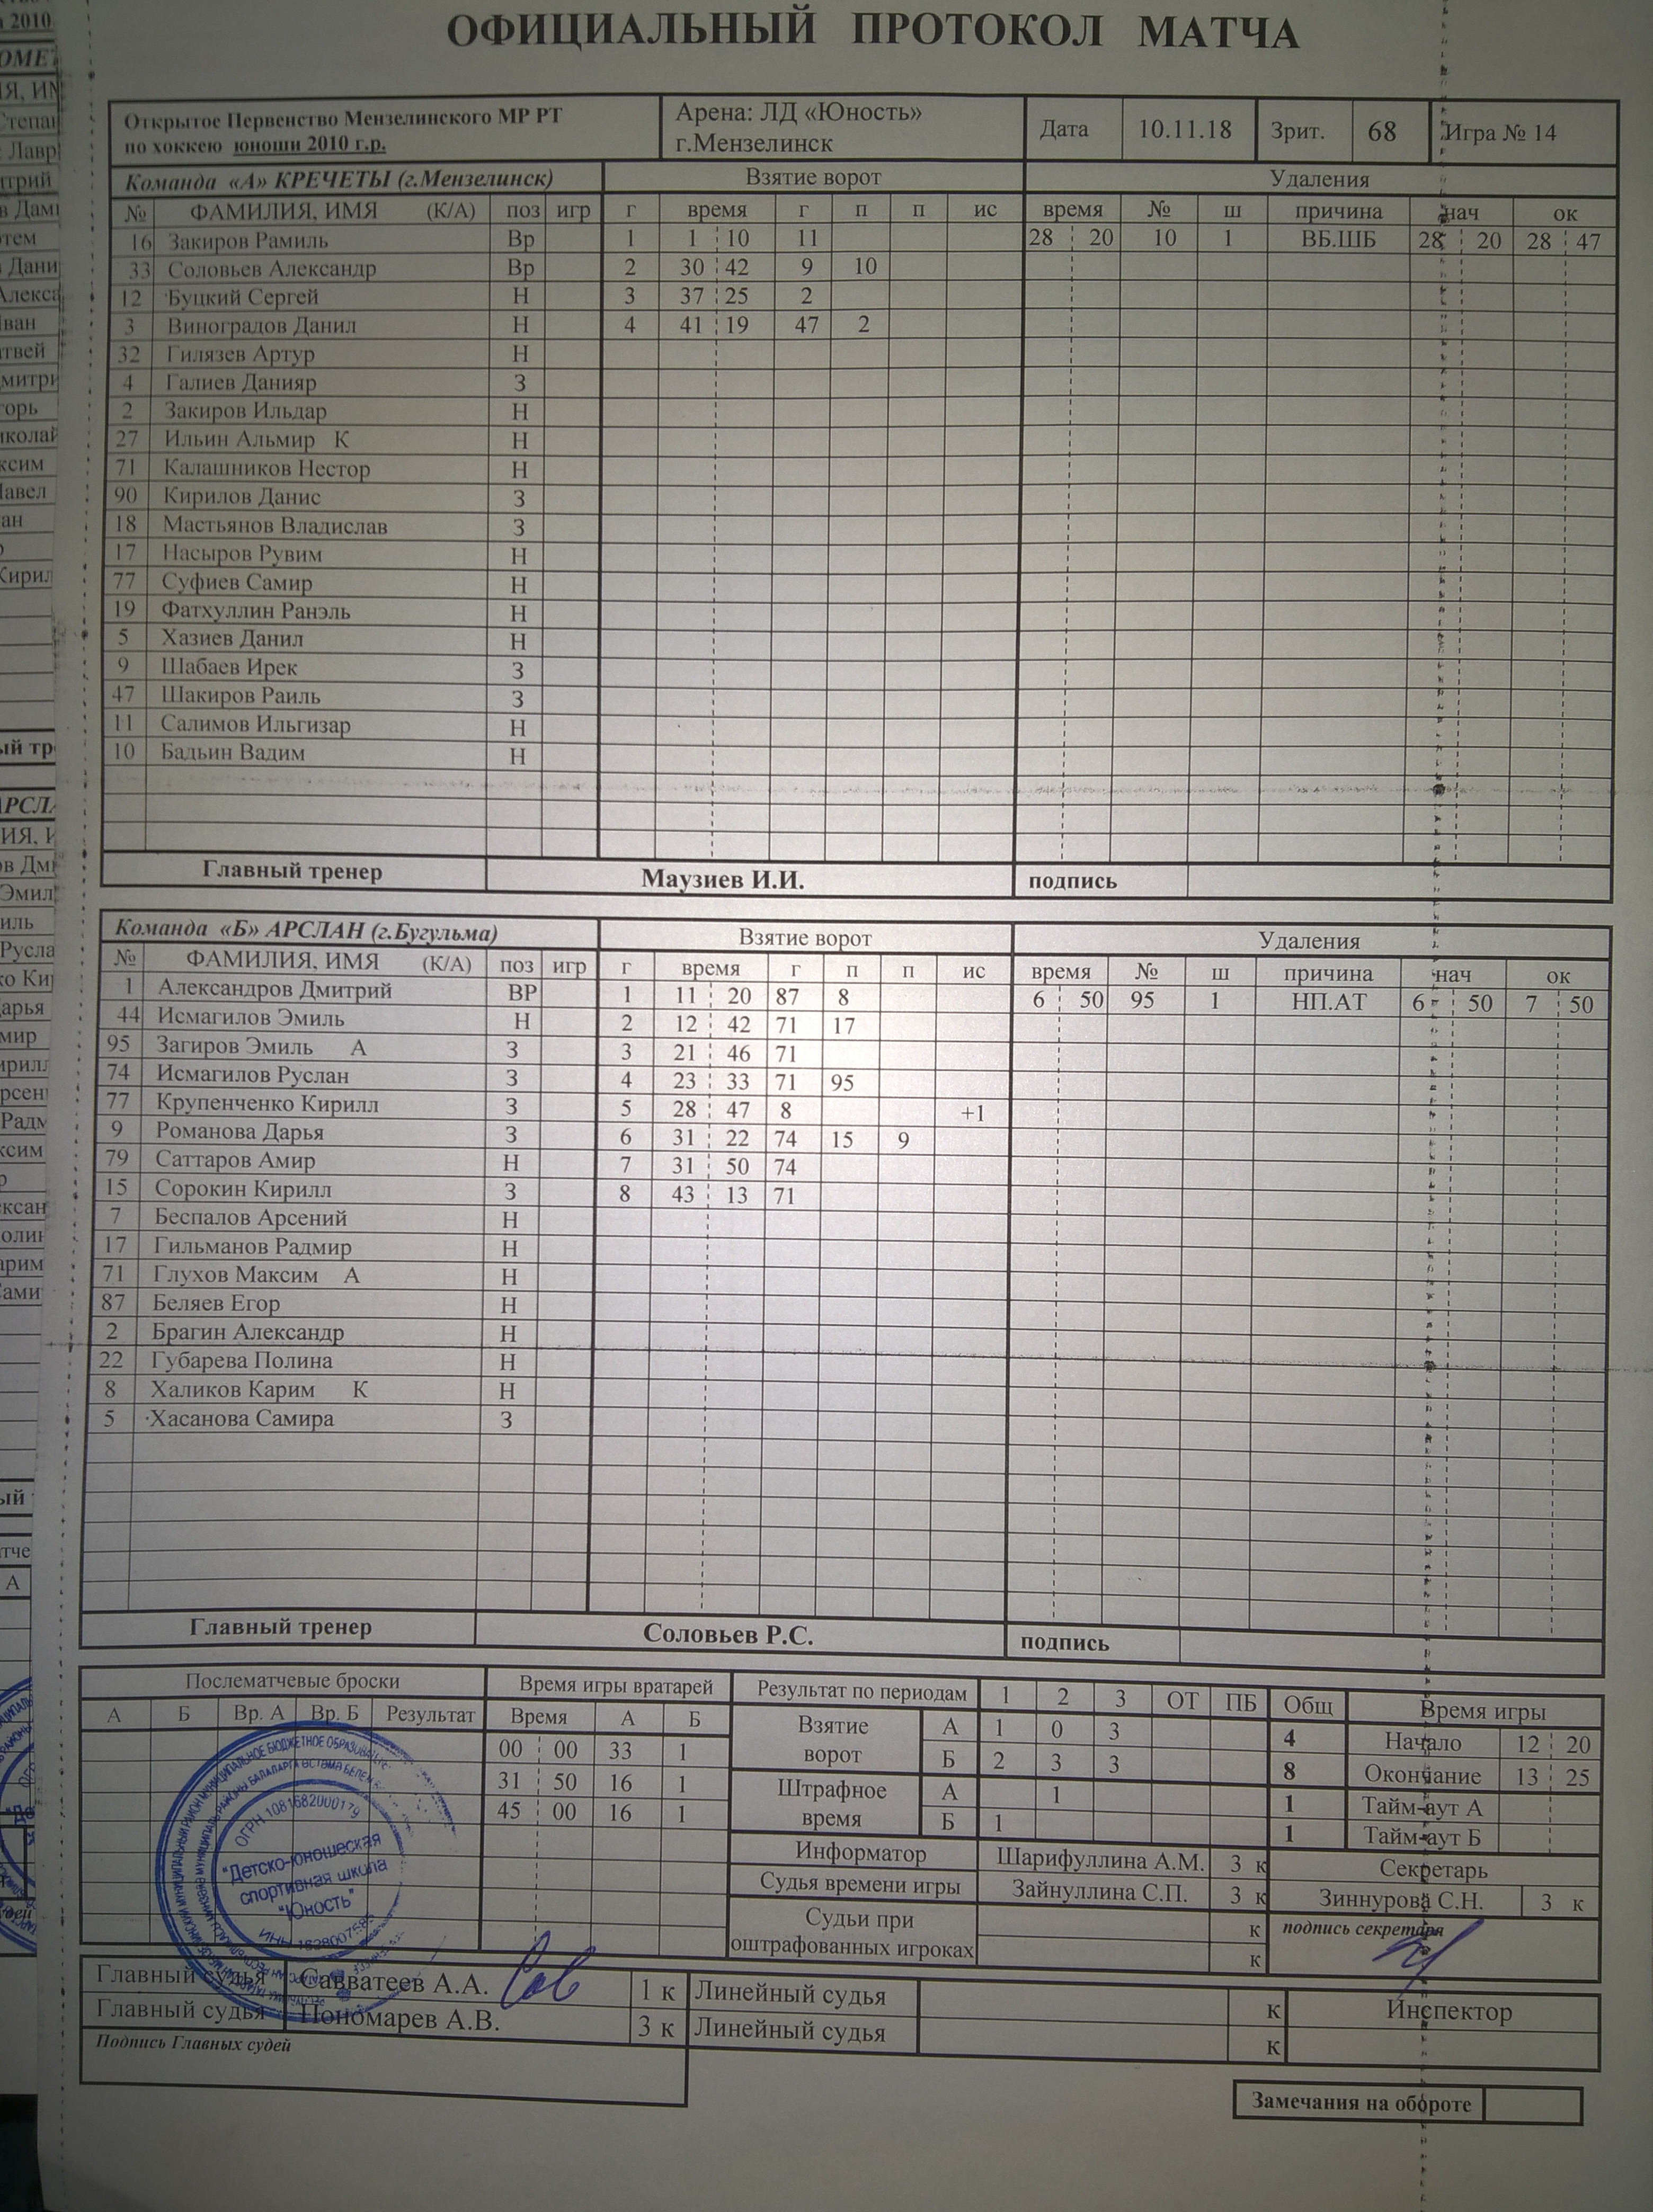 ОФИЦИАЛЬНЫЙ ПРОТОКОЛ МАТЧА
Открытое Первенство Мензелинского МР РТ
по хоккею юноши 2010 г.р.
Арена: ЛД «Юность»
г.Мензелинск
Дата 10.11.18 Зрит. 68 Игра № 14
Команда «А» КРЕЧЕТЫ (г.Мензелинск) Взятие ворот Удаления
№ ФАМИЛИЯ, ИМЯ (К/А) поз игр г время г п п ис время № ш причина нач ок
16 Закиров Рамиль Вр 1 1 10 11 28 20 10 1 ВБ.ШБ 28 20 28 47
33 Соловьев Александр Вр 2 30 42 9 10
12 Буцкий Сергей Н 3 37 25 2
3 Виноградов Данил Н 4 41 19 47 2
32 Гилязев Артур Н
4 Галиев Данияр З
2 Закиров Ильдар Н
27 Ильин Альмир К Н
71 Калашников Нестор Н
90 Кирилов Данис З
18 Мастьянов Владислав З
17 Насыров Рувим Н
77 Суфиев Самир Н
19 Фатхуллин Ранэль Н
5 Хазиев Данил Н
9 Шабаев Ирек З
47 Шакиров Раиль З
11 Салимов Ильгизар Н
10 Бадьин Вадим Н
Главный тренер Маузиев И.И. подпись
Команда «Б» АРСЛАН (г.Бугульма) Взятие ворот Удаления
№ ФАМИЛИЯ, ИМЯ (К/А) поз игр г время г п п ис время № ш причина нач ок
1 Александров Дмитрий ВР 1 11 20 87 8 6 50 95 1 НП.АТ 6 50 7 50
44 Исмагилов Эмиль Н 2 12 42 71 17
95 Загиров Эмиль А З 3 21 46 71
74 Исмагилов Руслан З 4 23 33 71 95
77 Крупенченко Кирилл З 5 28 47 8 +1
9 Романова Дарья З 6 31 22 74 15 9
79 Саттаров Амир Н 7 31 50 74
15 Сорокин Кирилл З 8 43 13 71
7 Беспалов Арсений Н
17 Гильманов Радмир Н
71 Глухов Максим А Н
87 Беляев Егор Н
2 Брагин Александр Н
22 Губарева Полина Н
8 Халиков Карим К Н
5 Хасанова Самира З
Главный тренер Соловьев Р.С. подпись
Послематчевые броски Время игры вратарей Результат по периодам 1 2 3 ОТ ПБ Общ Время игры
А Б Вр. А Вр. Б Результат Время А Б
Взятие ворот А 1 0 3 4 Начало 12 20
00 00 33 1
Б 2 3 3 8 Окончание 13 25
31 50 16 1
Штрафное время А 1 1 Тайм-аут А
45 00 16 1
Б 1 1 Тайм-аут Б
Информатор Шарифуллина А.М. 3 к Секретарь
Судья времени игры Зайнуллина С.П. 3 к Зиннурова С.Н. 3 к
Судьи при оштрафованных игроках к подпись секретаря
к
ОГРН 1081682000179
"Детско-юношеская
спортивная школа
"Юность"
Главный судья Савватеев А.А. 1 к Линейный судья к Инспектор
Главный судья Пономарев А.В. 3 к Линейный судья к
Подпись Главных судей
Замечания на обороте